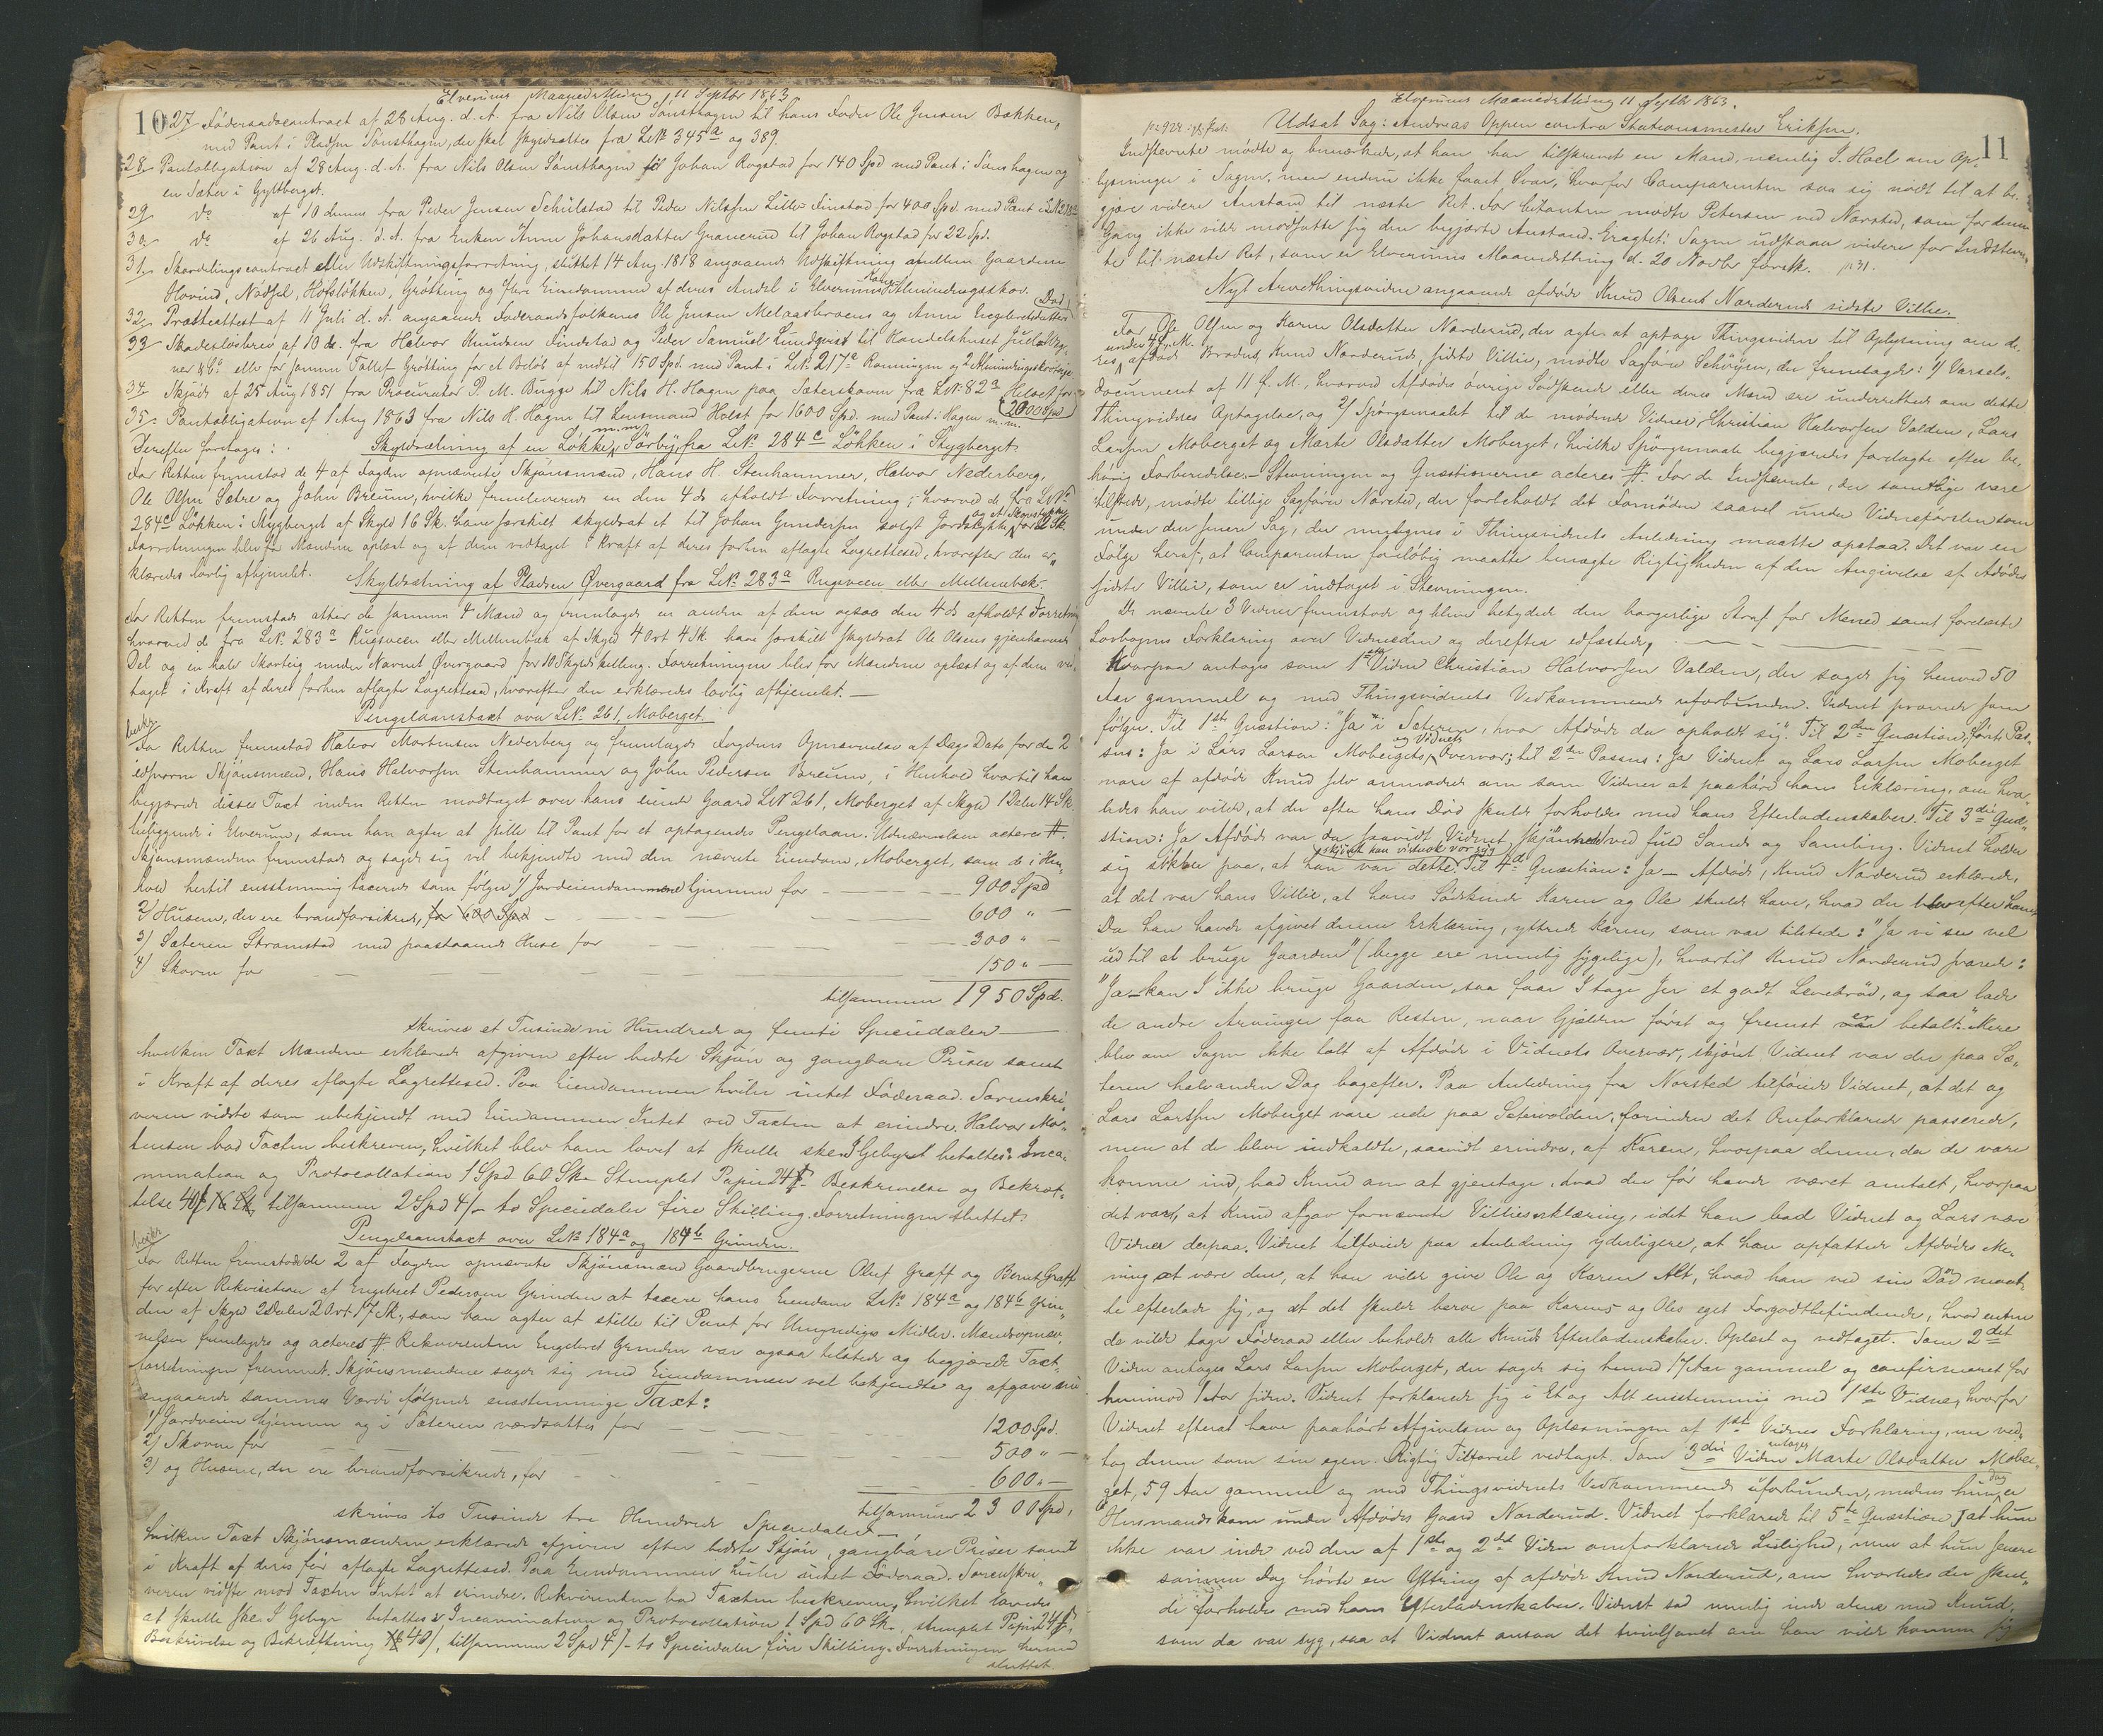 Elverums Maanedsthing 11 Septbr 1863
10
27 Föderaadscontract af 28 Aug. d. A. fra Nils Olsen Sönsthagen til hans Fader Ole Jensen Bakken,
med Pant i Pladsen Sönsthagen, der skal skyldsættes fra LNo 345a og 389.
28. Pantobligation af 28 Aug. d. A. fra Nils Olsen Sönsthagen til Johan Rogstad for 140 Spd med Pant i Sönshagen og
en Sæter i Gyldberget.
29 do af 10 dennes fra Peder Jensen Schülstad til Peder Nilssen Lille-Finstad for 400 Spd. med Pant i LN
30 do af 26 Aug. d. A. fra Enken Anne Johansdatter Granerud til Johan Rogstad for 22 Spd.
31 Skovdelingscontract eller Udskiftningsforretning, sluttet 14 Aug. 1818 angaaende Udskiftning mellem Gaardene
Hovind, Nödsel, Hofslökken, Grötting og flere Eiendomme af deres Andel i Elverums Almindingsskov.
32 Præsteattest af 11 Juli d. A. angaaende Föderaadsfolkenes Ole Jensen Melaasbraaens og Anne Engebretsdatters Död
33 Skadeslösbrev af 10 ds. fra Halvor Knudsen Findstad og Peder Samuel Lundqvist til Handelshuset Juel
ner & Co eller for samme Tollef Grötting for et Belöb af indtil 150 Spd. med Pant i LNo 217a Rönningen og 2 Almindingsskovteige
34 Skjöde af 25 Aug 1851 fra Procurator P. M. Bugge til Nils H. Hagen paa Sæterskoven fra LNo 82a Helset for
200 Spd
35 Pantobligation af 1 Aug 1863 fra Nils H. Hagen til Lensmand Holst for 1600 Spd. med Pant i Hagen m. m.
Derefter foretages: Skyldsætning af en Lökke m. m. Sörby fra LNo 284c Lökken i Skygberget.
For Retten fremstod de 4 af Fogden opnævnte Skjönsmænd, Hans H. Stenhammer, Halvor Nederberg,
Ole Olsen Sætre og John Breum, hvilke fremleverede en den 4 ds afholdt Forretning, hvorved de fra LNo
284c Lökken i Skygberget af Skyld 16 Sk. have forskilt skyldsat et til Johan Gundersen solgt Jordstykke og et Skovstykke for 2 Sk
Forretningen blev for Mændene oplæst og af dem vedtaget i Kraft af deres forhen aflagte Lagrettesed, hvorefter den er-
klæredes lovlig afhjemlet.
Skyldsætning af Pladsen Øvergaard fra LNo 283a Rugsveen eller Mellembæk.
For Retten fremstode atter de samme 4 Mænd og fremlagde en anden af dem ogsaa den 4 ds afholdt Forretning
hvorved de fra LNo 283a Rugsveen eller Mellembæk af Skyld 4 Ort 4 Sk. have forskilt skyldsat Ole Olsens gjenhavende
Del og en halv Skovteig under Navnet Øvergaard for 10 Skyldskilling. Forretningen blev for Mændene oplæst og af dem ved-
taget i Kraft af deres forhen aflagte Lagrettesed, hvorefter den erklæredes lovlig afhjemlet.
beskr.
Pengelaanstaxt over LNo 261, Moberget.
For Retten fremstod Halvor Mortensen Nederberg og fremlagde Fogdens Opnævnelse af Dags Dato for de 2
edsvorne Skjönsmænd, Hans Halvorsen Stenhammer og John Pedersen Breum, i Henhold hvortil han
begjærede disses Taxt inden Retten modtaget over hans eiende Gaard LNo 261, Moberget af Skyld 1 Daler 14 Sk.
beliggende i Elverum, som han agter at stille til Pant for et optagendes Pengelaan. Udnævnelsen acteres #.
Skjönsmændene fremstode og sagde sig vel bekjendte med den nævnte Eiendom, Moberget, som de i Hen-
hold hertil eensstemmig taxerede som fölger: 1) Jordeiendommene hjemme for 900 Spd
2) Husene, der ere brandforsikrede, for 600 Spd 600 "
3) Sæteren Stromstad med paastaaende Huse for 300 "
4) Skoven for 150 "
tilsammen 1950 Spd.
skriver et Tusinde ni Hundrede og femti Speciedaler
hvilken Taxt Mændene erklærede afgiven efter bedste Skjön og gangbare Priser samt
i Kraft af deres aflagte Lagrettesed. Paa Eiendommen hviler intet Föderaad. Sorenskri-
veren vidste som ubekjendt med Eiendommen Intet ved Taxten at erindre. Halvor Mor-
tensen bad Taxten beskreven, hvilket blev ham lovet at skulle skee. I Gebyr betaltes: Inca-
mination og Protocollation 1 Spd 60 Sk. Stemplet Papir 24 ß. Beskrivelse og Bekræf-
telse 40 ß 16 Sk, tilsammen 2 Spd 4/- to Speciedaler fire Skilling. Forretningen sluttet.
beskr.
Pengelaanstaxt over LNo 184a og 184b Grinden.
For Retten fremstode de 2 af Fogden opnævnte Skjönsmænd Gaardbrugerne Oluf Græff og Bernt Græff
for efter Rekvisition af Engebret Pedersen Grinden at taxere hans Eiendom LNo 184a og 184b Grin-
den af Skyld 2 Daler 2 Ort 17 Sk., som han agter at stille til Pant for Umyndiges Midler. Mændsopnæv-
nelsen fremlagdes og acteres # Rekvirenten Engebret Grinden var ogsaa tilstede og begjærede Taxt-
forretningen fremmet. Skjönsmændene sagde sig med Eiendommen vel bekjendte og afgave nu
angaaende sammes Værdi fölgende eensstemmige Taxt:
1) Jordveien hjemme og i Sæteren værdsattes for 1200 Spd.
2) Skoven for 500 "
3) og Husene, der ere brandforsikrede, for 600 "
tilsammen 2300 Spd.
skrives to Tusinde tre Hundrede Speciedaler
hvilken Taxt Skjönsmændene erklærede afgiven efter bedste Skjön, gangbare Priser samt
i Kraft af deres för aflagte Lagrettesed. Paa Eiendommen hviler intet Föderaad. Sorenskri-
veren vidste mod Taxten Intet at erindre. Rekvirenten bad Taxten beskreven, hvilket lovedes
at skulle skee. I Gebyr betaltes: Incamination og Protocollation 1 Spd 60 Sk., stemplet Papir 24 ß,
Beskrivelse og Bekræftning 40/, tilsammen 2 Spd 4/- to Speciedaler fire Skilling. Forretningen hermed
sluttet.
Elverums Maanedsthing 11 Septbr 1863.
11
Udsat Sag: Andreas Oppen contra Stationsmester Eriksen.
Indstevnte mödte og bemærkede, at han har tilskrevet en Mand, nemlig J. Hoel om Op-
lysninger i Sagen, men endnu ikke faaet Svar, hvorfor Comparenten saa sig nödt til at be-
gjære videre Anstand til næste Ret. For Citanten mödte Petersen ved Norsted, som for denne
Gang ikke vilde modsætte sig den begjærte Anstand. Eragtet: Sagen udstaar videre for Indstevn-
te til næste Ret, som er Elverums Maanedsthing d. 20 Novbr förstk. p 31.
Nyt Arvethingsvidne angaaende afdöde Knud Olsens Norderuds sidste Villie.
For Ole Olsen og Karen Olsdatter Norderud, der agte at optage Thingsvidne til Oplysning om de-
res under 4 f. M. afdöde Broders, Knud Norderuds, sidste Villie, mödte Sagförer Schöyen, der fremlagde: 1) Varsels-
document af 11 f. M., hvorved Afdödes övrige Södskende eller deres Mænd ere underrettede om dette
Thingsvidnes Optagelse, og 2) Spörgsmaalet til de mödende Vidner, Christian Halvorsen Valden, Lars
Larsen Moberget og Marte Olsdatter Moberget, hvilke Spörgsmaale begjæredes forelagte efter be-
hörig Forberedelse. Stevningen og Qvæstionerne acteres #. For de Indstevnte, der samtlige vare
tilstede, mödte tillige Sagförer Norsted, der forbeholdt det Fornödne saavel under Vidneförslen som
under den senere Sag, der muligens i Thingsvidnets Anledning maatte opstaa. Det var en
Fölge heraf, at Comparenten foreløbig maatte benægte Rigtigheden af den Angivelse af Afdödes
sidste Villie, som er indtaget i Stevningen.
De nævnte 3 Vidner fremstode og bleve betydede den borgerlige Straf for Meened samt forelæst
Lovbogens Forklaring over Vidneeden og derefter edfæstede.
Hvorpaa antoges som 1ste Vidne Christian Halvorsen Valden, der sagde sig henved 50
Aar gammel og med Thingsvidnets Vedkommende uforbunden. Vidnet provede som
fölger. Til 1ste Qvæstion: "Ja i Sæteren, hvor Afdöde da opholdt sig". Til 2den Qvæstion, förste Pas-
sus: Ja i Lars Larsen Mobergets og Vidnets Overvær; til 2den Passus: Ja Vidnet og Lars Larsen Moberget
vare af afdöde Knud selv anmodede om som Vidner at paahöre hans Erklæring, om hvor-
ledes han vilde, at der efter hans Död skulde forholdes med hans Efterladenskaber. Til 3die Qvæ-
stion: Ja Afdöde var da saavidt Vidnet skjönnede ved fuld Sands og Samling. Vidnet holder
sig sikker paa, at han var dette, skjönt han vistnok var syg. Til 4de Qvæstion: Ja - Afdöde, Knud Norderud erklærede,
at det var hans Villie, at hans Södskende Karen og Ole skulde have, hvad der blev efter ham.
Da han havde afgivet denne Erklæring, yttrede Karen, som var tilstede: "Ja vi ser vel
ud til at bruge Gaarden" (begge ere nemlig sygelige), hvortil Knud Norderud svarede:
"Ja - kan I ikke bruge Gaarden, saa faar I tage Jer et godt Levebröd, og saa lade
de andre Arvinger faa Resten, naar Gjælden först og fremst er betalt." Mere
blev om Sagen ikke talt af Afdöde i Vidnets Overvær, skjönt Vidnet var der paa Sæ-
teren halvanden Dag bagefter. Paa Anledning fra Norsted tilföiede Vidnet, at det og
Lars Larsen Moberget vare ude paa Sætervolden, forinden det Omforklarede passerede,
men at de bleve indkaldte, saavidt erindres, af Karen, hvorpaa denne, da de vare
komne ind, bad Knud om at gjentage, hvad der för havde været omtalt, hvorpaa
det var, at Knud afgav fornævnte Villieserklæring, idet han bad Vidnet og Lars være
Vidner derpaa. Vidnet tilföiede paa Anledning yderligere, at han opfattede Afdödes Me-
ning at være den, at han vilde give Ole og Karen Alt, hvad han ved sin Död maat-
te efterlade sig, og at det skulde beroe paa Karens og Oles eget Forgodtbefindende, hvad enten
de vilde tage Föderaad eller beholde alle Knuds Efterladenskaber. Oplæst og vedtaget. Som 2det
Vidne antoges Lars Larsen Moberget, der sagde sig henved 17 Aar gammel og confirmeret for
henimod 1 Aar siden. Vidnet forklarede sig i Et og Alt eensstemmig med 1ste Vidne, hvorfor
Vidnet efterat have paahört Afgivelsen og Oplæsningen af 1ste Vidnes Forklaring, nu ved-
tog denne som sin egen. Rigtig Tilförsel vedtaget. Som 3die Vidne antoges Marte Olsdatter Mober-
get, 59 Aar gammel og med Thingsvidnets Vedkommende uforbunden, medens hun dog er
Huusmandskone under Afdödes Gaard Norderud. Vidnet forklarede til 5te Qvæstion, at hun
ikke var inde ved den af 1ste og 2det Vidne omforklarede Leilighed, men at hun senere
samme Dag hörte en Yttring af afdöde Knud Norderud, om hvorledes der skul-
de forholdes med hans Efterladenskaber. Vidnet sad nemlig inde alene med Knud,
som da var syg, saa at Vidnet ansaa det tvivlsomt om han vilde komme sig